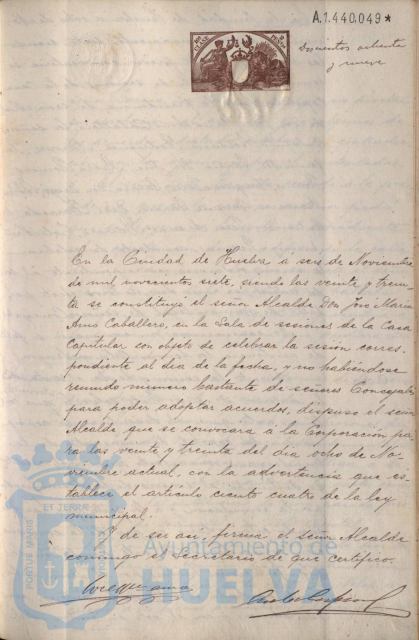 A.1.440.049*
Doscientos ochenta
y nueve
En la Ciudad de Huelva a seis de Noviembre
de mil novecientos siete, siendo las veinte y trein-
ta se constituyó el señor Alcalde Don José María
Amo Caballero, en la Sala de sesiones de la Casa
Capitular con objeto de celebrar la sesión corres-
pondiente al dia de la fecha, y no habiéndose
reunido número bastante de señores Concejales
para poder adoptar acuerdos, dispuso el señor
Alcalde que se convocara á la Corporación pa-
ra las veinte y treinta del dia ocho de No-
viembre actual, con la advertencia que es-
tablece el artículo ciento cuatro de la ley
municipal.
Y de ser asi, firma el señor Alcalde
conmigo el secretario de que certifico.
PORTUS MARIS
ET TERRAE
Ayuntamiento de
HUELVA